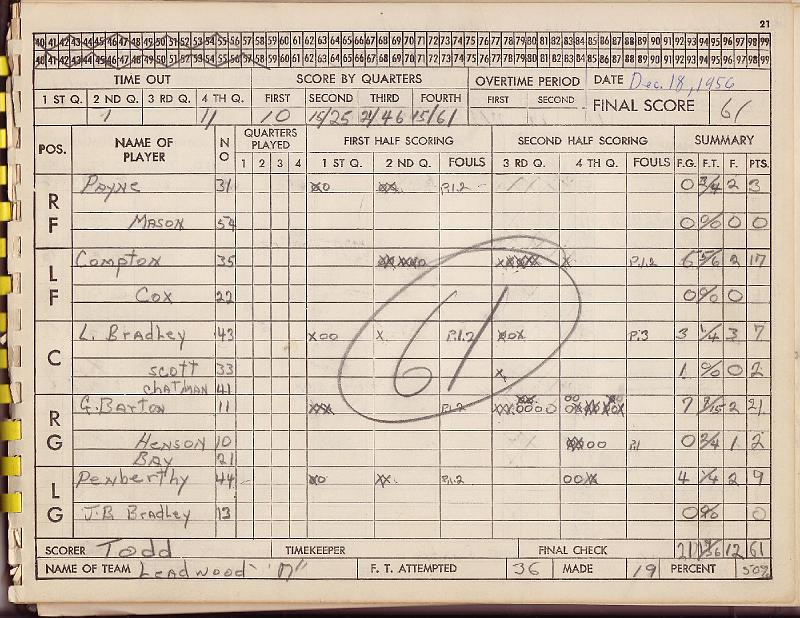 21
40 41 42 43 44 45 46 47 48 49 50 51 52 53 54 55 56 57 58 59 60 61 62 63 64 65 66 67 68 69 70 71 72 73 74 75 76 77 78 79 80 81 82 83 84 85 86 87 88 89 90 91 92 93 94 95 96 97 98 99
40 41 42 43 44 45 46 47 48 49 50 51 52 53 54 55 56 57 58 59 60 61 62 63 64 65 66 67 68 69 70 71 72 73 74 75 76 77 78 79 80 81 82 83 84 85 86 87 88 89 90 91 92 93 94 95 96 97 98 99
TIME OUT SCORE BY QUARTERS OVERTIME PERIOD DATE Dec. 18, 1956
1 ST Q. 2 ND Q. 3 RD Q. 4 TH Q. FIRST SECOND THIRD FOURTH FIRST SECOND FINAL SCORE 61
1 11 10 15/25 21/46 15/61
POS. NAME OF PLAYER NO QUARTERS PLAYED FIRST HALF SCORING SECOND HALF SCORING SUMMARY
1 2 3 4 1 ST Q. 2 ND Q. FOULS 3 RD Q. 4 TH Q. FOULS F.G. F.T. F. PTS.
RF Payne 31 P.1.2 0 3/4 2 3
Mason 54 0 0/0 0 0
LF Compton 35 P.1.2 6 5/6 2 17
Cox 22 0 0/0 0
C L. Bradley 43 P.1.2 P.3 3 1/4 3 7
Scott 33 1 0/0 0 2
Chatman 41
RG G. Barton 11 P.1.2 7 2 21
Henson 10 P.1 0 1 2
Bay 21
LG Penberthy 44 P.1.2 4 1/4 2 9
J.B. Bradley 13 0 0/0 0
SCORER Todd TIMEKEEPER FINAL CHECK 21 19/36 12 61
NAME OF TEAM Leadwood F. T. ATTEMPTED 36 MADE 19 PERCENT 50%
61